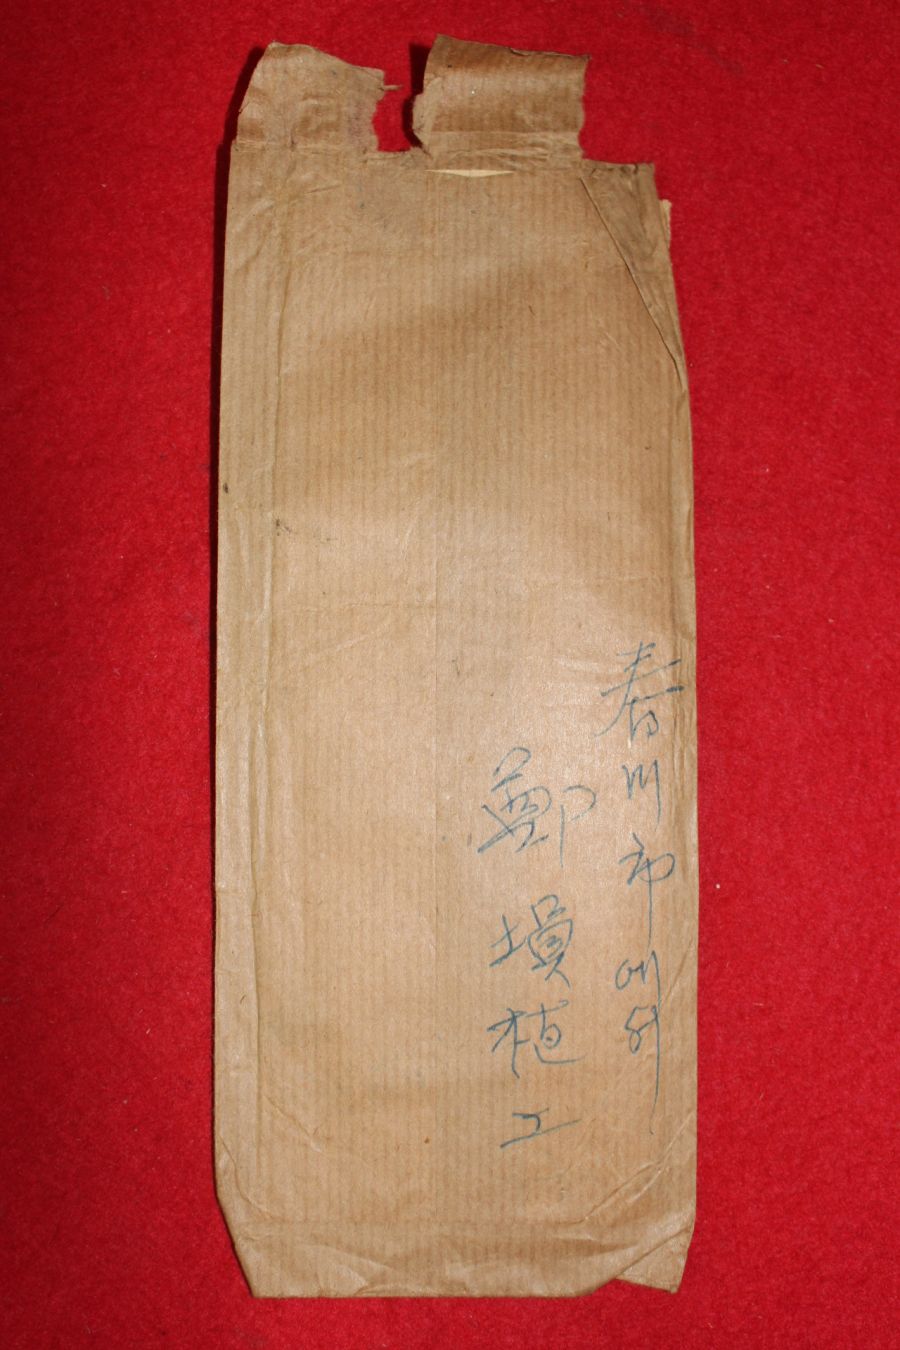 春川市에서
鄭塤植上